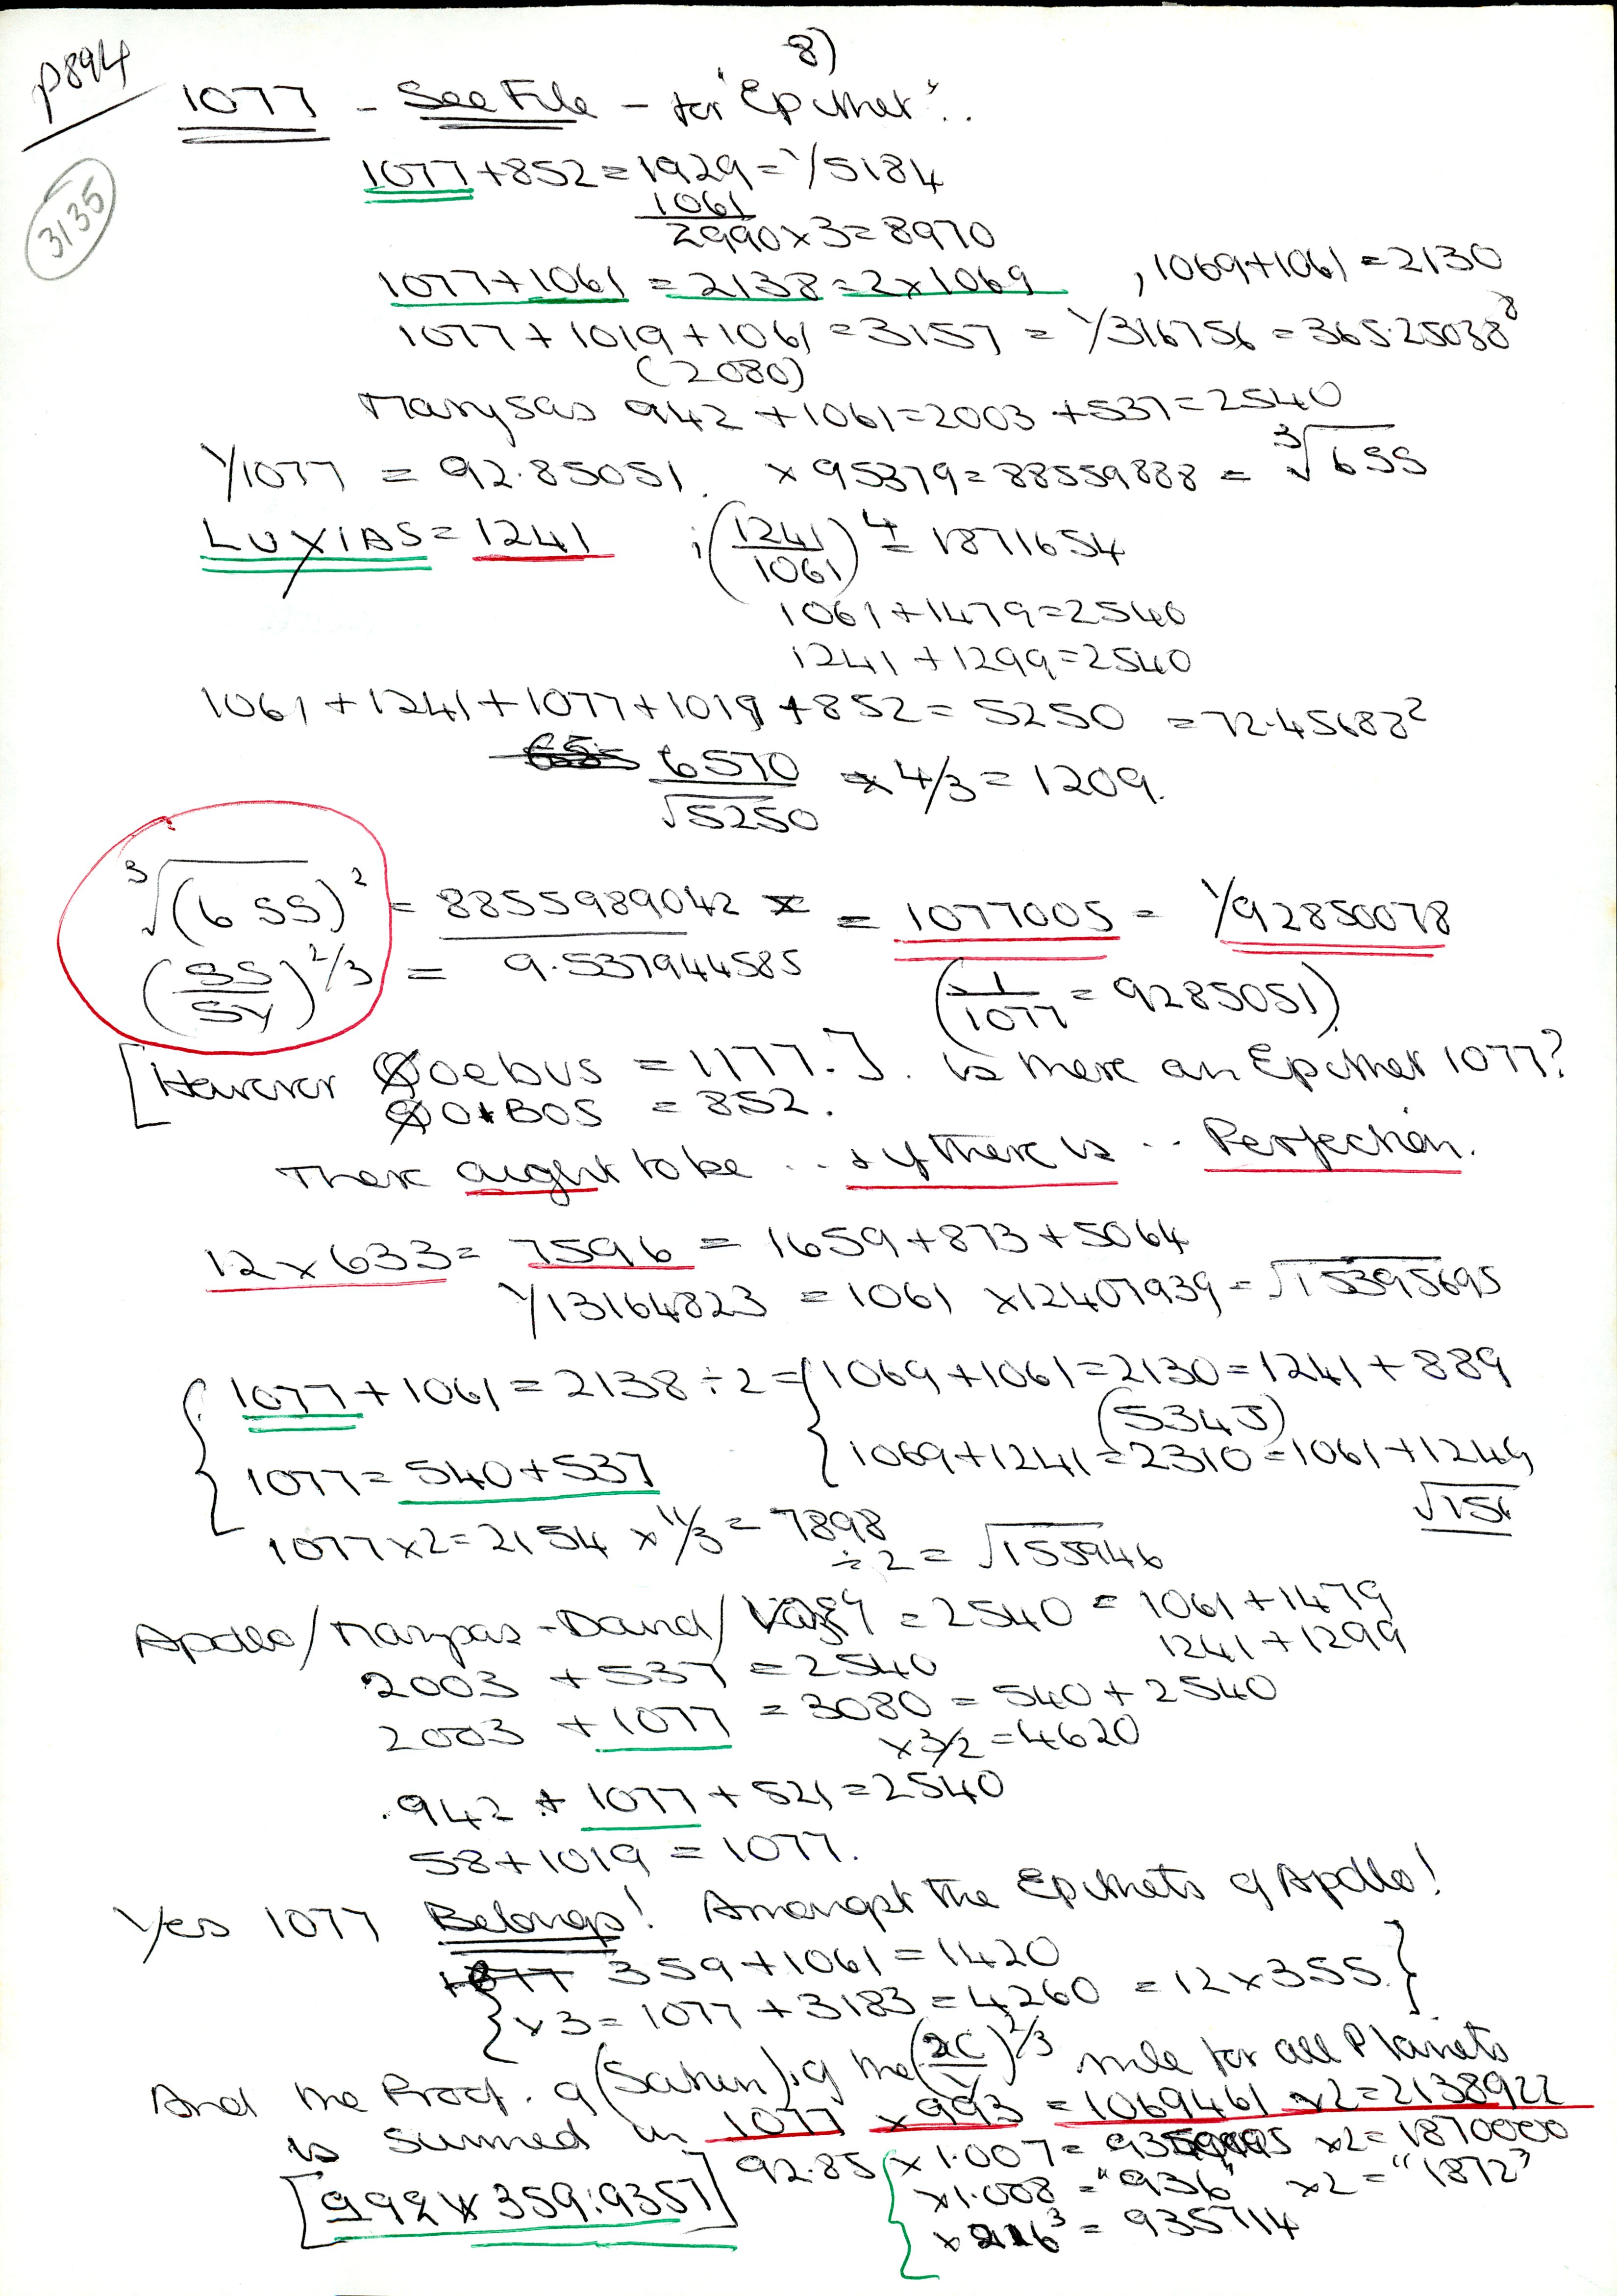 8)
p894
1077 - See File - for "Epithet"..
3135
1077+852=1929=1/5184
1061
2990x3=8970
1077+1061=2138=2x1069 , 1069+1061=2130
1077+1019+1061=3157=1/316756=365.25038²
(2080)
Marysas 942+1061=2003+537=2540
1/1077 = 92.85051. x95379=88559888=∛6SS
LUXIAS=1241 ; (1241/1061)⁴=1871654
1061+1479=2540
1241+1299=2540
1061+1241+1077+1019+852=5250 =72.45688²
6570/√5250 x4/3=1209.
∛(6SS)² = 8855989042 x = 1077005 = 1/92850078
(SS/SY)^2/3 = 9.537944585 (1/1077=9285051)
[However Øoebus = 1177.]. Is there an Epithet 1077?
ØOIBOS = 852.
There aught to be ... if there is .. Perfection.
12x633=7596=1659+873+5064
1/13164823=1061 x12407939=√15395695
1077+1061=2138÷2={1069+1061=2130=1241+889
(534J)
1077=540+537 1069+1241=2310=1061+1249
√156
1077x2=2154x11/3=7898
÷2=√155946
Apollo/Marypas-David/ =2540=1061+1479
1241+1299
2003+537=2540
2003+1077=3080=540+2540
x3/2=4620
.942+1077+521=2540
58+1019=1077.
Yes 1077 Belongs! Amongst the Epithets of Apollo!
359+1061=1420
{x3=1077+3183=4260=12x355.}
And the Proof. of (Saturn) of the ( )^2/3 rule for all Planets
is Summed in 1077 x993=1069461 x2=2138922
92.85 x1.007= x2=1870000
[992x359.9357] x1.008="936" x2="1872"
x216³=935714